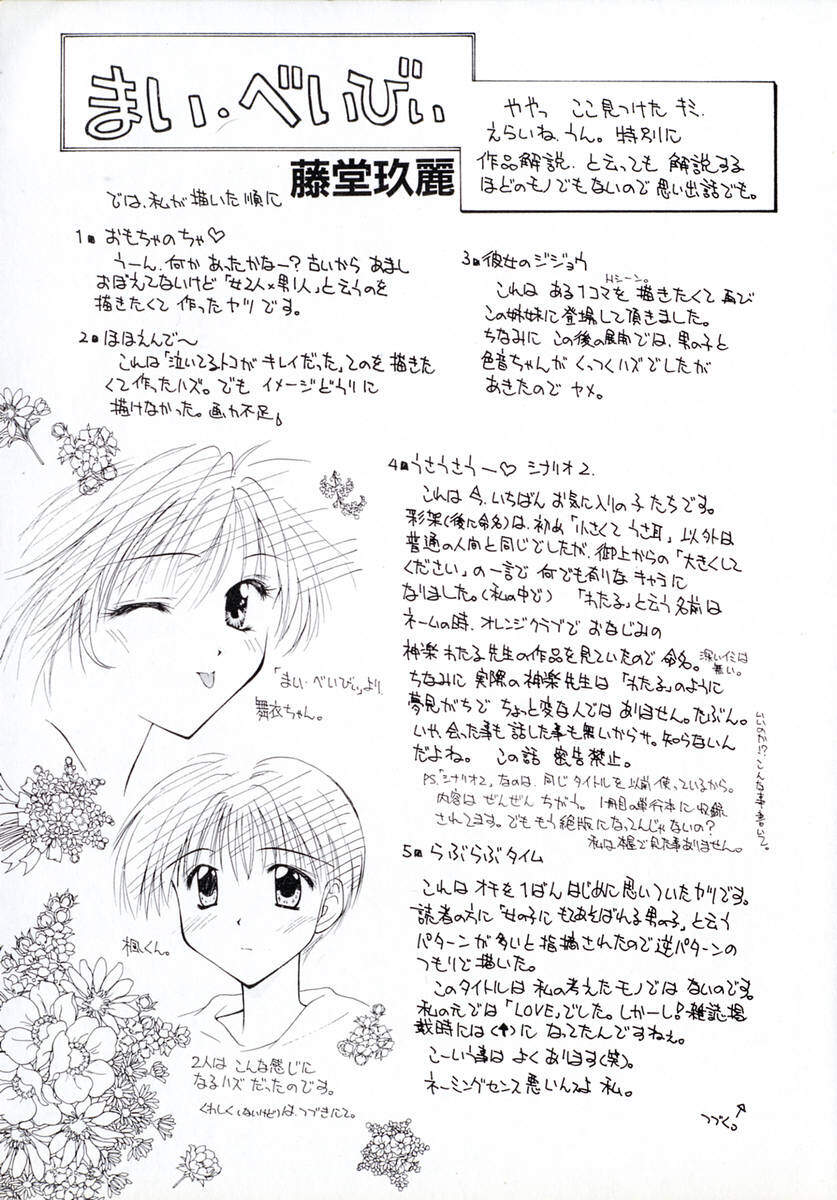 まい・べいびぃ
藤堂玖麗
ややっ ここ見つけた キミ、
えらいね、うん。特別に
作品解説、と云っても 解説する
ほどのモノでもないので 思い出話でも。
では、私が描いた順に
1■ おもちゃのちゃ♡
うーん、何か あったかなー？古いから あまし
おぼえてないけど「女2人×男1人」と云うのを
描きたくて 作ったヤツ です。
2■ ほほえんで〜
これは「泣いてるトコが キレイだった」てのを 描きた
くて作ったハズ。でも イメージどうりに
描けなかった。画力不足。
3■ 彼女のジジョウ
Hシーン。
これは ある1コマを 描きたくて 再び
この姉妹に登場して頂きました。
ちなみに この後の展開では、男の子と
色音ちゃんが くっつくハズでしたが
あきたので ヤメ。
4■ うさうさうー♡ シナリオ2.
これは 今、いちばん お気に入りの子たちです。
彩架(後に命名)は、初め「小さくて うさ耳」以外は
普通の人間と同じでしたが、御上からの「大きくして
ください」の一言で 何でも有りな キャラに
なりました。(私の中で) 「わたる」と云う名前は
ネームの時、オレンジクラブで おなじみの
神楽 わたる先生の作品を見ていたので 命名。
深いイミは
無い。
ちなみに 実際の神楽先生は 「わたる」のように
夢見がちで ちょっと変な人では ありません。たぶん。
いや、会った事も 話した事も無いからサ。知らないん
だよね。 この話 密告禁止。
いいのか!?こんな事書いて。
PS.「シナリオ2」なのは、同じタイトルを以前 使っているから。
内容は ぜんぜん ちがう。1冊目の単行本に収録
されてます。でも もう絶版になってんじゃないの？
私は本屋で見た事ありません。
5■ らぶらぶタイム
これは オチを 1ばん はじめに思いついたヤツです。
読者の方に「女の子に もてあそばれる男の子」と云う
パターンが多いと指摘されたので 逆パターンの
つもりで描いた。
このタイトルは 私の考えた モノでは ないのです。
私の元では「LOVE」でした。しかーし!雑誌掲
載時には(↑)に なってたんですねぇ。
こーいう事は よく あります(笑)。
ネーミングセンス 悪いんでよ 私。
つづく。
「まい・べいびぃ」より、
舞衣ちゃん。
楓くん。
2人は こんな感じに
なるハズ だったのです。
くわしく(ないけど)は、つづきにて。